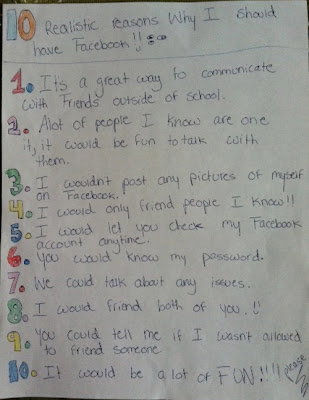 10 Realistic reasons Why I Should
have Facebook!!
1. It's a great way to communicate
with Friends outside of school.
2. Alot of people I know are one
it, it would be fun to talk with
them.
3. I wouldn't post any pictures of myself
on Facebook.
4. I would only friend people I know!!
5. I would let you check my Facebook
account anytime.
6. You would know my password.
7. We could talk about any issues.
8. I would friend both of you.!!
9. You could tell me if I wasn't allowed
to friend someone
10. It would be a lot of FUN!!!! please